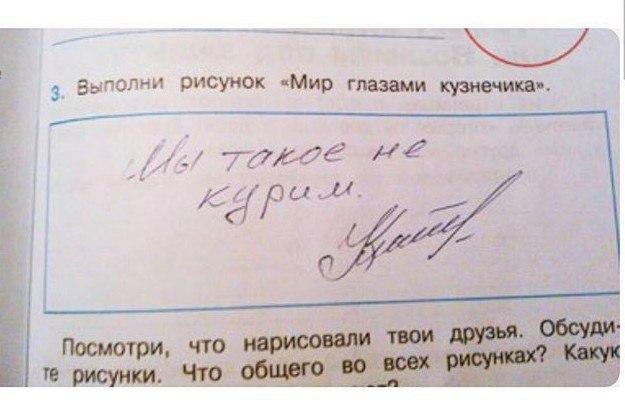 3. Выполни рисунок «Мир глазами кузнечика».
Мы такое не
курим.
Посмотри, что нарисовали твои друзья. Обсуди-
те рисунки. Что общего во всех рисунках? Какую